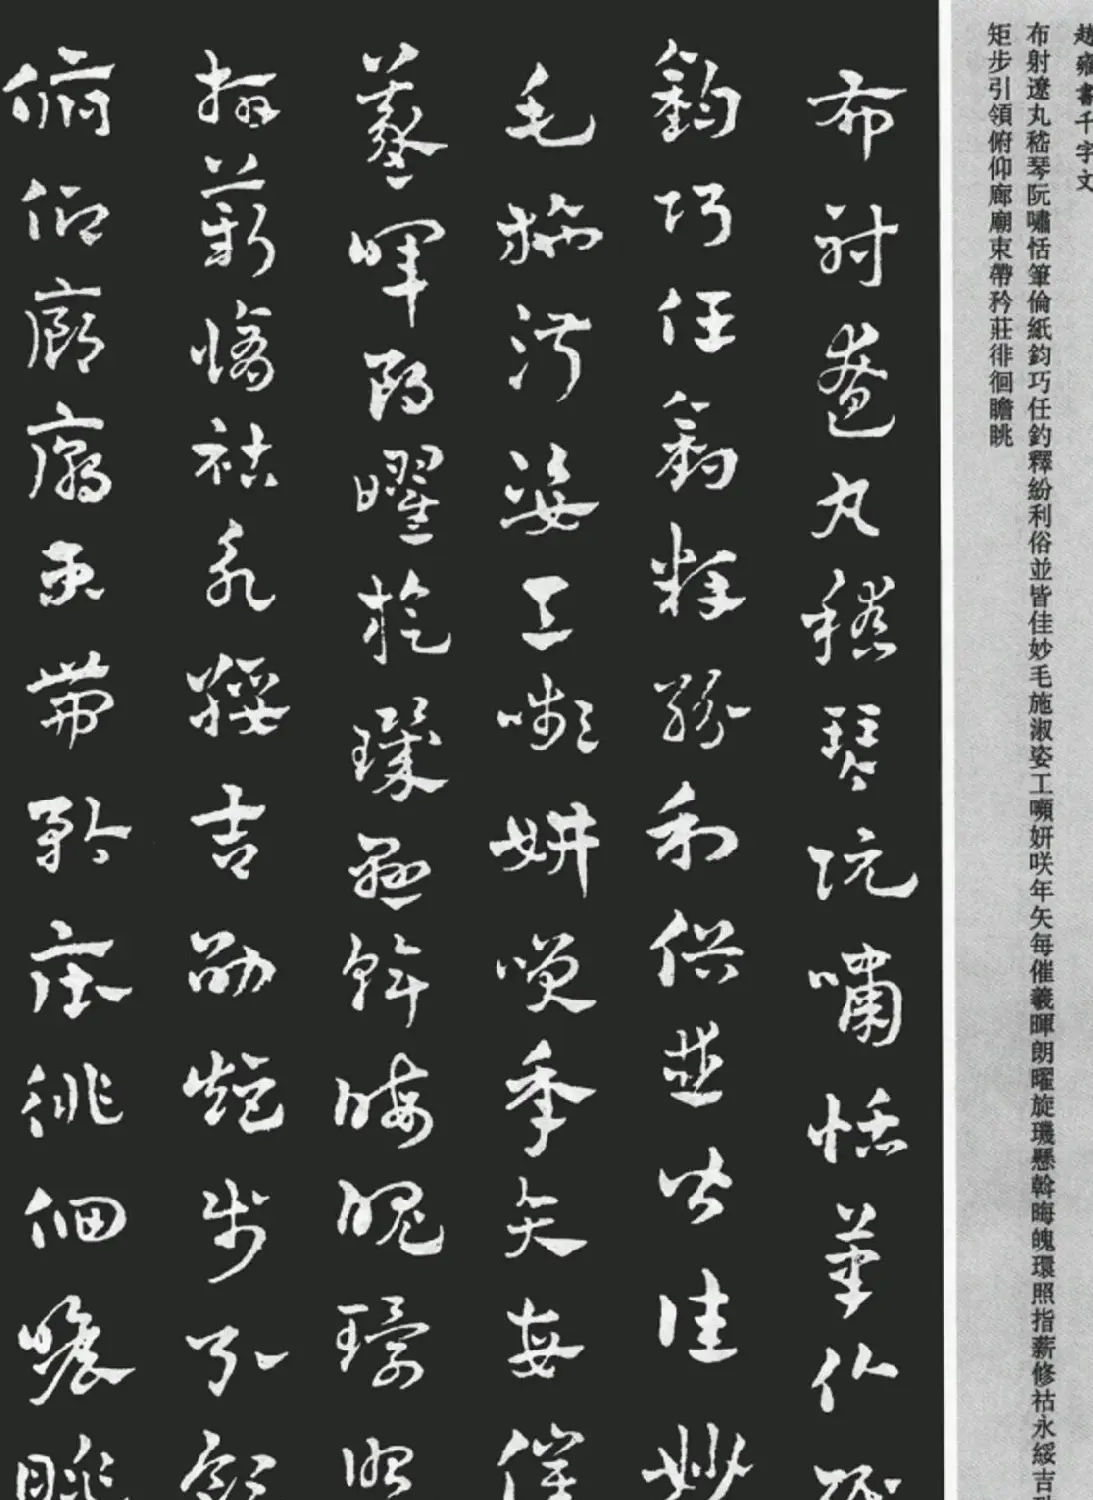 趙雍書千字文
布射遼丸嵇琴阮嘯恬筆倫紙鈞巧任釣釋紛利俗並皆佳妙毛施淑姿工嚬妍咲年矢每催羲暉朗曜旋璣懸斡晦魄環照指薪修祜永綏吉
矩步引領俯仰廊廟束帶矜莊徘徊瞻眺
布射遼丸嵇琴阮嘯恬筆倫紙
鈞巧任釣釋紛利俗並皆佳妙
毛施淑姿工嚬妍咲年矢每催
羲暉朗曜旋璣懸斡晦魄環照
指薪修祜永綏吉劭矩步引領
俯仰廊廟束帶矜莊徘徊瞻眺